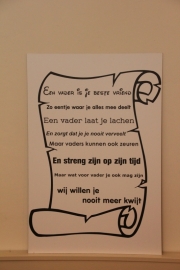 Een vader is je beste vriend
Zo eentje waar je alles mee deelt
Een vader laat je lachen
En zorgt dat je je nooit verveelt
Maar vaders kunnen ook zeuren
En streng zijn op zijn tijd
Maar wat voor vader je ook mag zijn
wij willen je
nooit meer kwijt